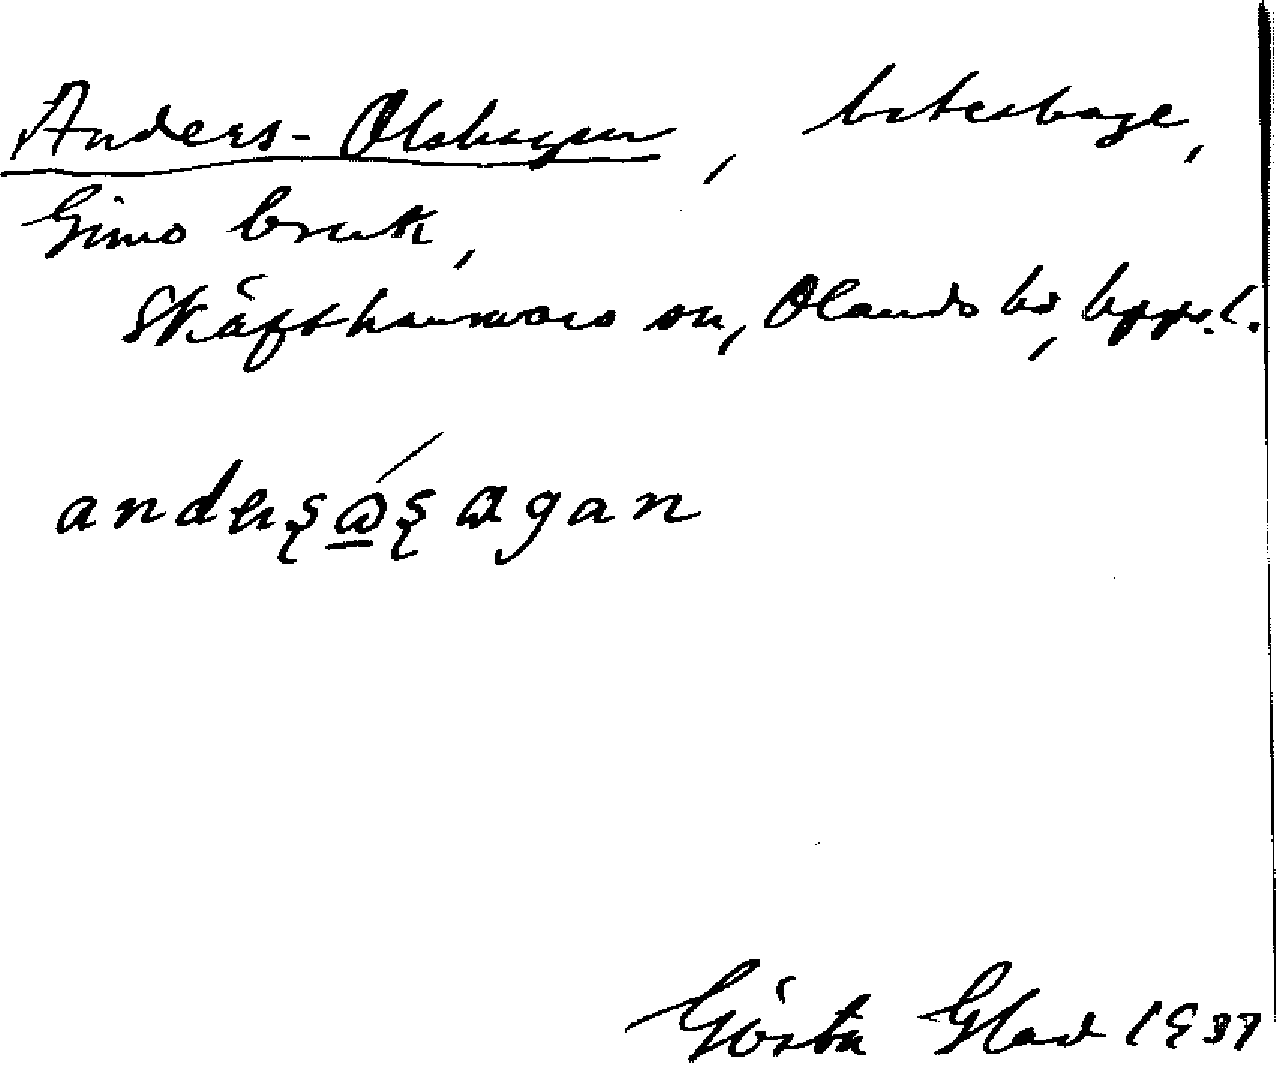 Anders-Olshagen, beteshage,
Gimo bruk,
Skäfthammars sn, Olands hd, Upps. l.
Gösta Glad 1937